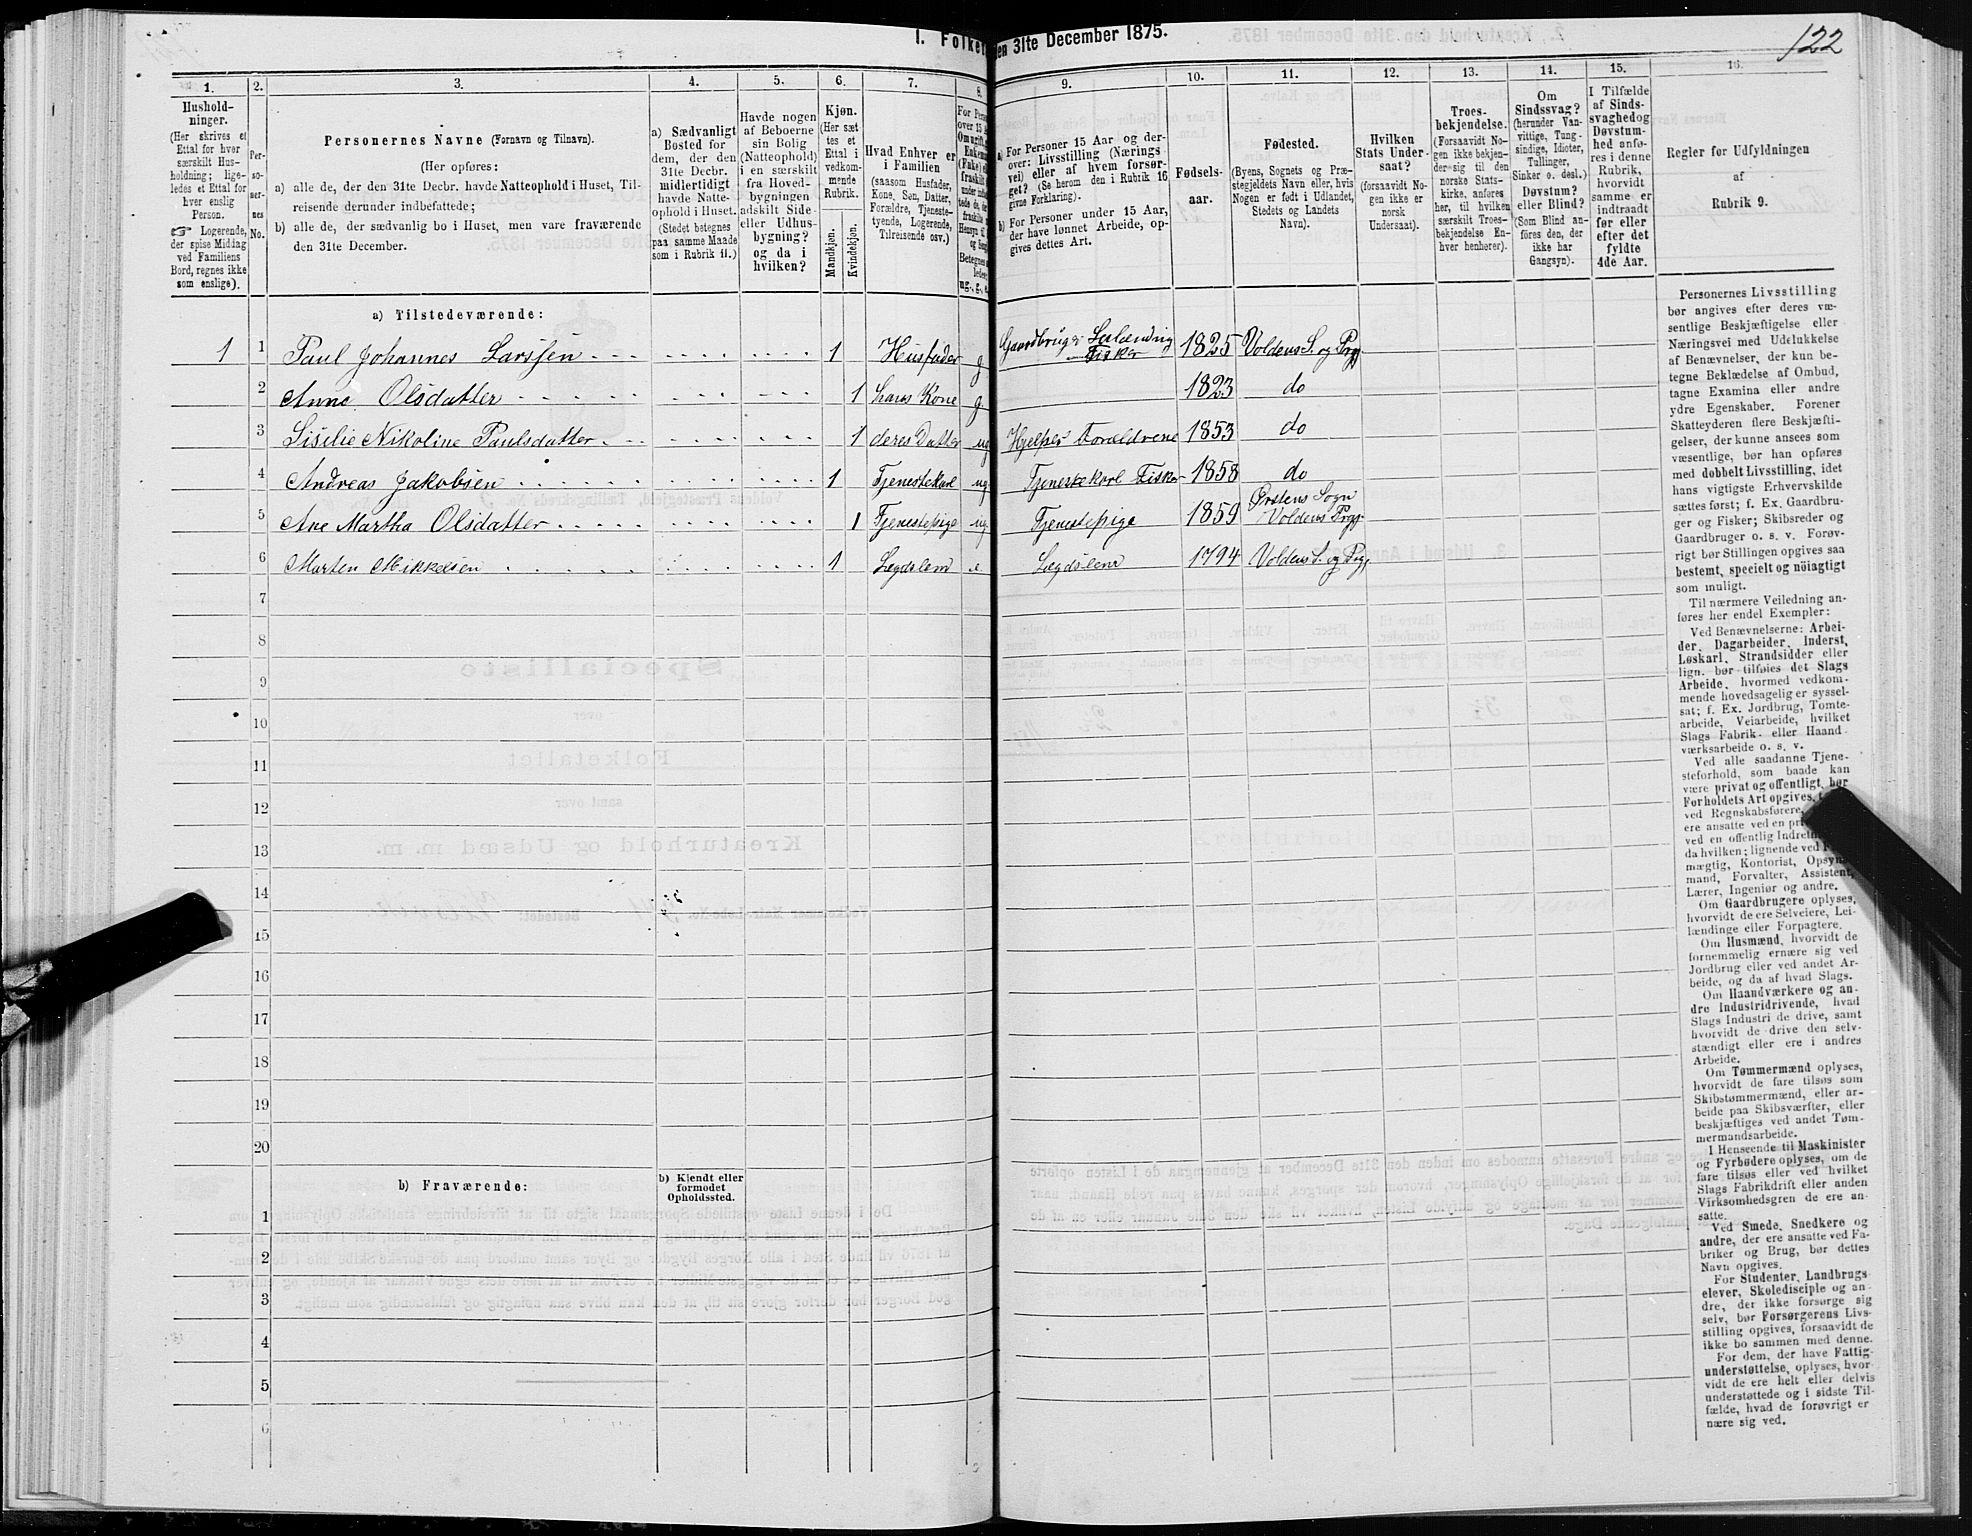 122
1. Folket
en 31te December 1875.
1.
2.
3.
4.
5.
6.
7.
8.
9.
10.
11.
12.
13.
14.
15.
16.
Hushold-
ninger.
(Her skrives et
Ettal for hver
særskilt Hus-
holdning; lige-
ledes et Ettal for
hver enslig
Person.
☞ Logerende,
der spise Middag
ved Familiens
Bord, regnes ikke
som enslige).
Per-
so-
ner-
nes
No.
Personernes Navne (Fornavn og Tilnavn).
(Her opføres:
a) alle de, der den 31te Decbr. havde Natteophold i Huset, Til-
reisende derunder indbefattede;
b) alle de, der sædvanlig bo i Huset, men vare fraværende
den 31te December.
a) Sædvanligt
Bosted for
dem, der den
31te Decbr.
midlertidigt
havde Natte-
ophold i Huset.
(Stedet betegnes
paa samme Maade
som i Rubrik 11.)
Havde nogen
af Beboerne
sin Bolig
(Natteophold)
i en særskilt
fra Hoved-
bygningen
adskilt Side-
eller Udhus-
bygning?
og da i
hvilken?
Kjøn.
(Her sæt-
tes et
Ettal i
vedkom-
mende
Rubrik.
Mandkjøn.
Kvindekjøn.
Hvad Enhver er
i Familien
(saasom Husfader,
Kone, Søn, Datter,
Forældre, Tjeneste-
tyende, Logerende,
Tilreisende osv.)
a) For Personer 15 Aar og der-
over: Livsstilling (Nærings-
vei) eller af hvem forsør-
get? (Se herom den i Rubrik 16
givne Forklaring).
b) For Personer under 15 Aar,
der have lønnet Arbeide, op-
gives dettes Art.
Fødsels-
aar.
Fødested.
(Byens, Sognets og Præ-
stegjeldets Navn eller, hvis
Nogen er født i Udlandet,
Stedets og Landets
Navn).
Hvilken
Stats Under-
saat?
(forsaavidt No-
gen ikke er
norsk
Undersaat).
Troes-
bekjendelse.
(Forsaavidt No-
gen ikke bekjen-
der sig til den
norske Stats-
kirke, anføres
her, til hvilken
særskilt Troes-
bekjendelse En-
hver henhører).
Om
Sindssvag?
(herunder Van-
vittige, Tung-
sindige, Idioter,
Tullinger,
Sinker o. desl.)
Døvstum?
eller Blind?
(Som Blind an-
føres den, der
ikke har
Gangsyn).
I Tilfælde
af Sinds-
svaghed og
Døvstum-
hed anfø-
res i denne
Rubrik,
hvorvidt
samme er
indtraadt
før eller
efter det
fyldte
4de Aar.
Regler for Udfyldningen
af
Rubrik 9.
a) Tilstedeværende:
1 1 Paul Johannes Larssen 1 Husfader g Gaardbruger Selveindrig Fisker 1825 Voldens S. og Prgj
2 Anne Olsdatter 1 hans Kone g. 1823 do
3 Siselie Nikoline Paulsdatter 1 deres Datter ug Hjelper Forældrene 1853 do
4 Andreas Jakobsen 1 Tjenestekarl ug Tjenestekarl Fisker 1858 do
5 Ane Martha Olsdatter 1 Tjenestepige ug Tjenestepige 1859 Ørstens Sogn Voldens Prgj.
6 Marten Mikkelsen 1 Legdslem e. Legdslem 1794 Voldens S. og Prgj
7
8
9
10
11
12
13
14
15
16
17
18
19
20
b) Fraværende:
b) Kjendt eller
formodet
Opholdssted.
1
2
3
4
5
6
Personernes Livsstilling
bør angives efter deres væ-
sentlige Beskjæftigelse eller
Næringsvei med Udelukkelse
af Benævnelser, der kun be-
tegne Beklædelse af Ombud,
tagne Examina eller andre
ydre Egenskaber. Forener
Skatteyderen flere Beskjæfti-
gelser, der kunne ansees som
væsentlige, bør han opføres
med dobbelt Livsstilling, idet
hans vigtigste Erhvervskilde
sættes først; f. Ex. Gaardbru-
ger og Fisker; Skibsreder og
Gaardbruger o. s. v. Forøv-
rigt bør Stillingen opgives saa
bestemt, specielt og nöiagtigt
som muligt.
Til nærmere Veiledning an-
føres her endel Exempler:
Ved Benævnelserne: Arbei-
der, Dagarbeider, Inderst,
Løskarl, Strandsidder eller
lign. bør tilføies det Slags
Arbeide, hvormed vedkom-
mende hovedsagelig er syssel-
sat; f. Ex. Jordbrug, Tomte-
arbeide, Veiarbeide, hvilket
Slags Fabrik- eller Haand-
værksarbeide o. s. v.
Ved alle saadanne Tjene-
steforhold, som baade kan
være privat og offentligt, bør
Forholdets Art opgives,
ved Regnskabsførere,
ere ansatte ved en pri
ved en offentlig Indret
da hvilken; lignende ved F
mægtig, Kontorist, Opsyns-
mand, Forvalter, Assistent,
Lærer, Ingeniør og andre.
Om Gaardbrugere oplyses,
hvorvidt de ere Selveiere, Lei-
lændinge eller Forpagtere.
Om Husmænd, hvorvidt de
fornemmelig ernære sig ved
Jordbrug eller ved andet Ar-
beide, og da af hvad Slags.
Om Haandværkere og an-
dre Industridrivende, hvad
Slags Industri de drive, samt
hvorvidt de drive den selv-
stændigt eller ere i andres
Arbeide.
Om Tømmermænd oplyses,
hvorvidt de fare tilsøs som
Skibstømmermænd, eller ar-
beide paa Skibsværfter, eller
beskjæftiges ved andet Tøm-
mermandsarbeide.
I Henseende til Maskinister
og Fyrbødere oplyses, om de
fare tilsøs eller ved hvilket
Slags Fabrikdrift eller anden
Virksomhedsgren de ere an-
satte.
Ved Smede, Snedkere og
andre, der ere ansatte ved Fa-
briker og Brug, bør dettes
Navn opgives.
For Studenter, Landbrugs-
elever, Skoledisciple og an-
dre, der ikke forsørge sig
selv, bør Forsørgerens Livs-
stilling opgives, forsaavidt de
ikke bo sammen med denne.
For dem, der have Fattig-
understøttelse, oplyses, hvor-
vidt de ere helt eller delvis
understøttede og i sidste Til-
fælde, hvad de forøvrigt er
nære sig ved.